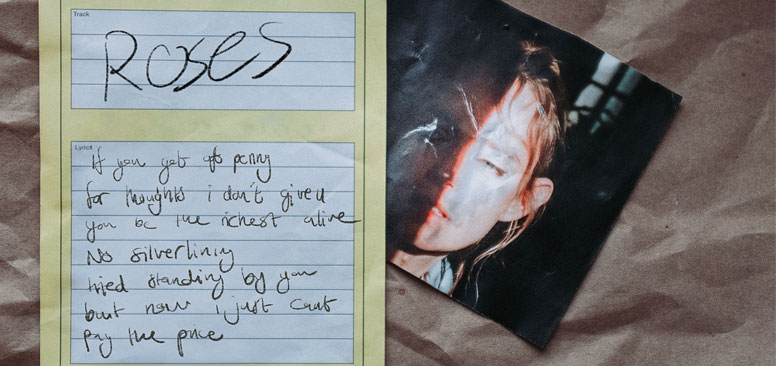 Track
Roses
Lyrics
If you get penny
for thoughts i don't give u
you be the richest alive
No silverlining
tried standing by you
but now i just cant
pay the price